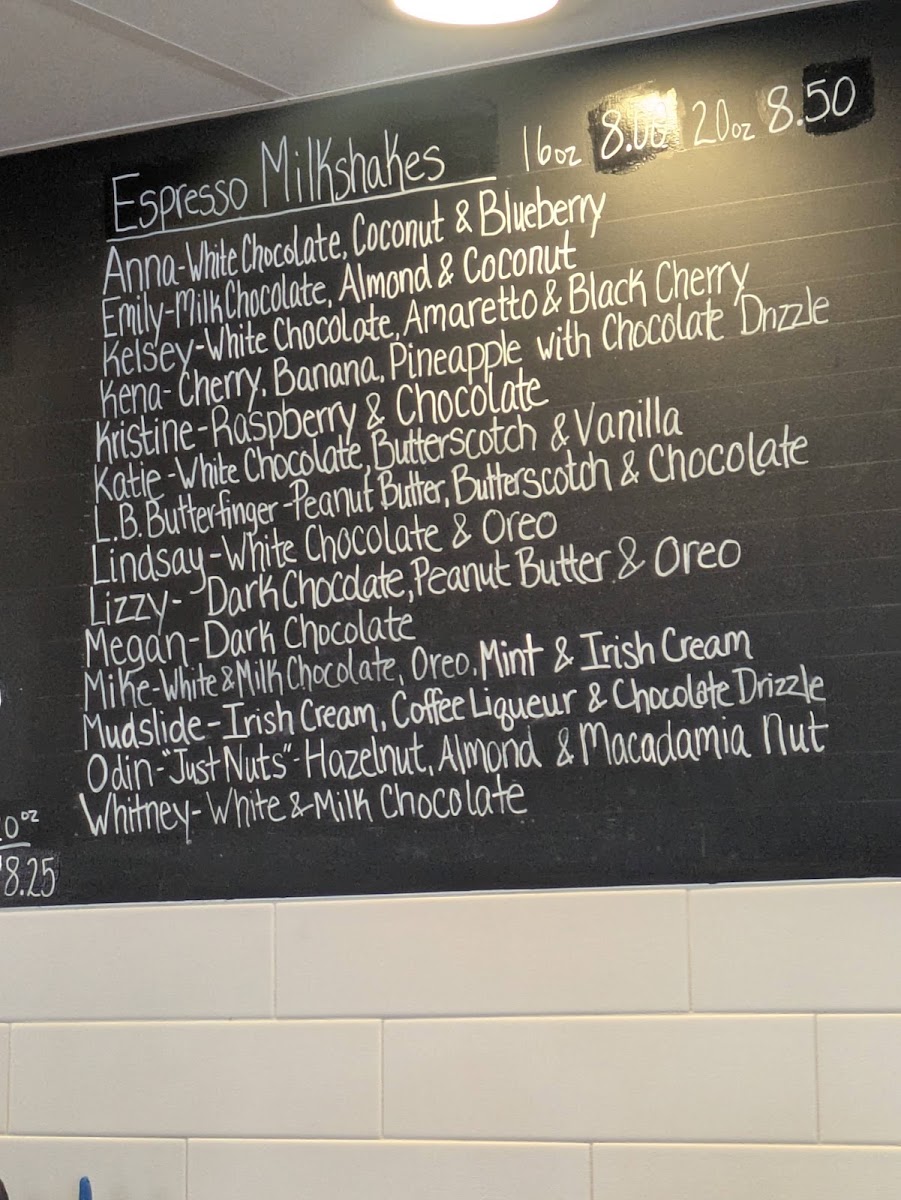 Espresso Milkshakes 16oz 8.00 20oz 8.50
Anna-White Chocolate, Coconut & Blueberry
Emily-Milk Chocolate, Almond & Coconut
Kelsey-White Chocolate, Amaretto & Black Cherry
Kena- Cherry, Banana, Pineapple with Chocolate Drizzle
Kristine-Raspberry & Chocolate
Katie-White Chocolate, Butterscotch & Vanilla
L.B. Butterfinger-Peanut Butter, Butterscotch & Chocolate
Lindsay-White Chocolate & Oreo
Lizzy- Dark Chocolate, Peanut Butter & Oreo
Megan-Dark Chocolate
Mike-White & Milk Chocolate, Oreo, Mint & Irish Cream
Mudslide-Irish Cream, Coffee Liqueur & Chocolate Drizzle
Odin-"Just Nuts"-Hazelnut, Almond & Macadamia Nut
Whitney-White & Milk Chocolate
8.25